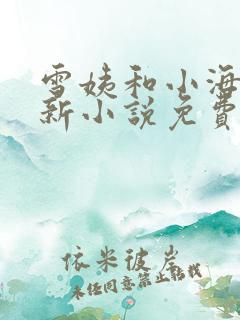 雪姨和小海
新小说免費
依米彼岸
未经同意禁止转载